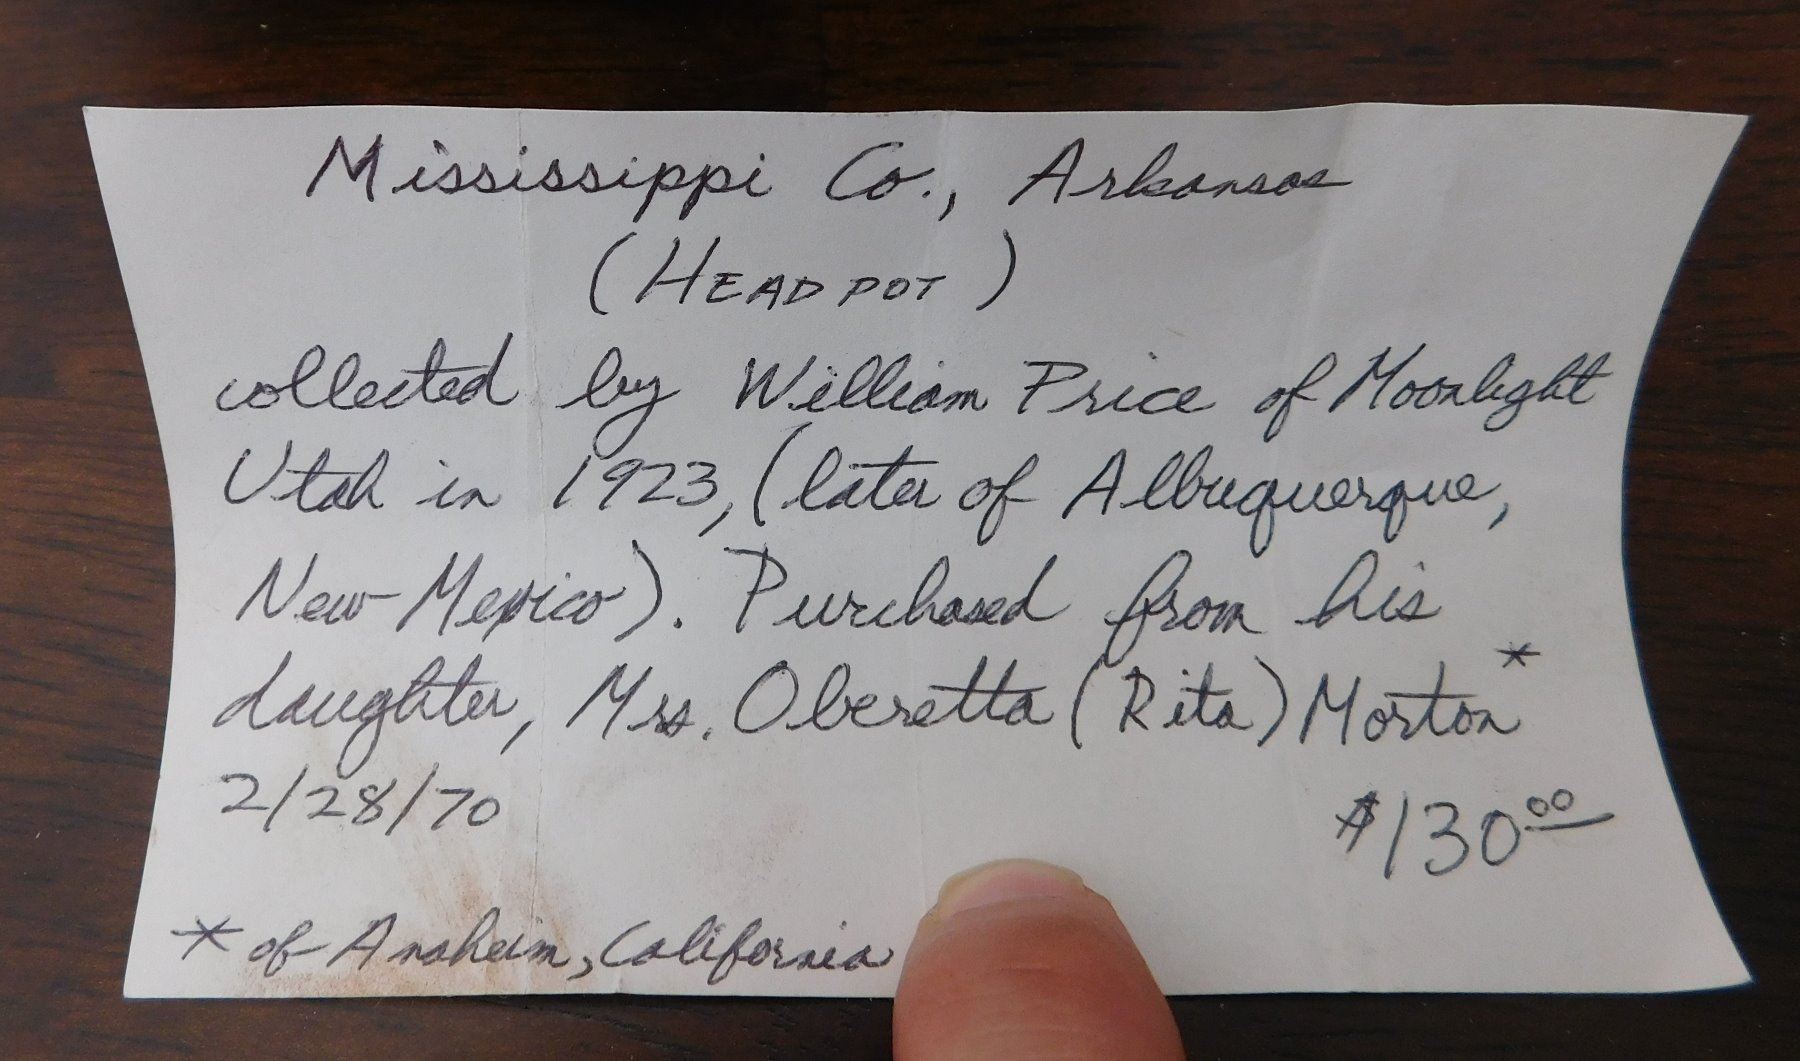 Mississippi Co., Arkansas
(HEAD POT)
collected by William Price of Moonlight
Utah in 1923, (later of Albuquerque,
New Mexico). Purchased from his
daughter, Mrs. Oberetta (Rita) Morton*
2/28/70 $130.00
* of Anaheim, California